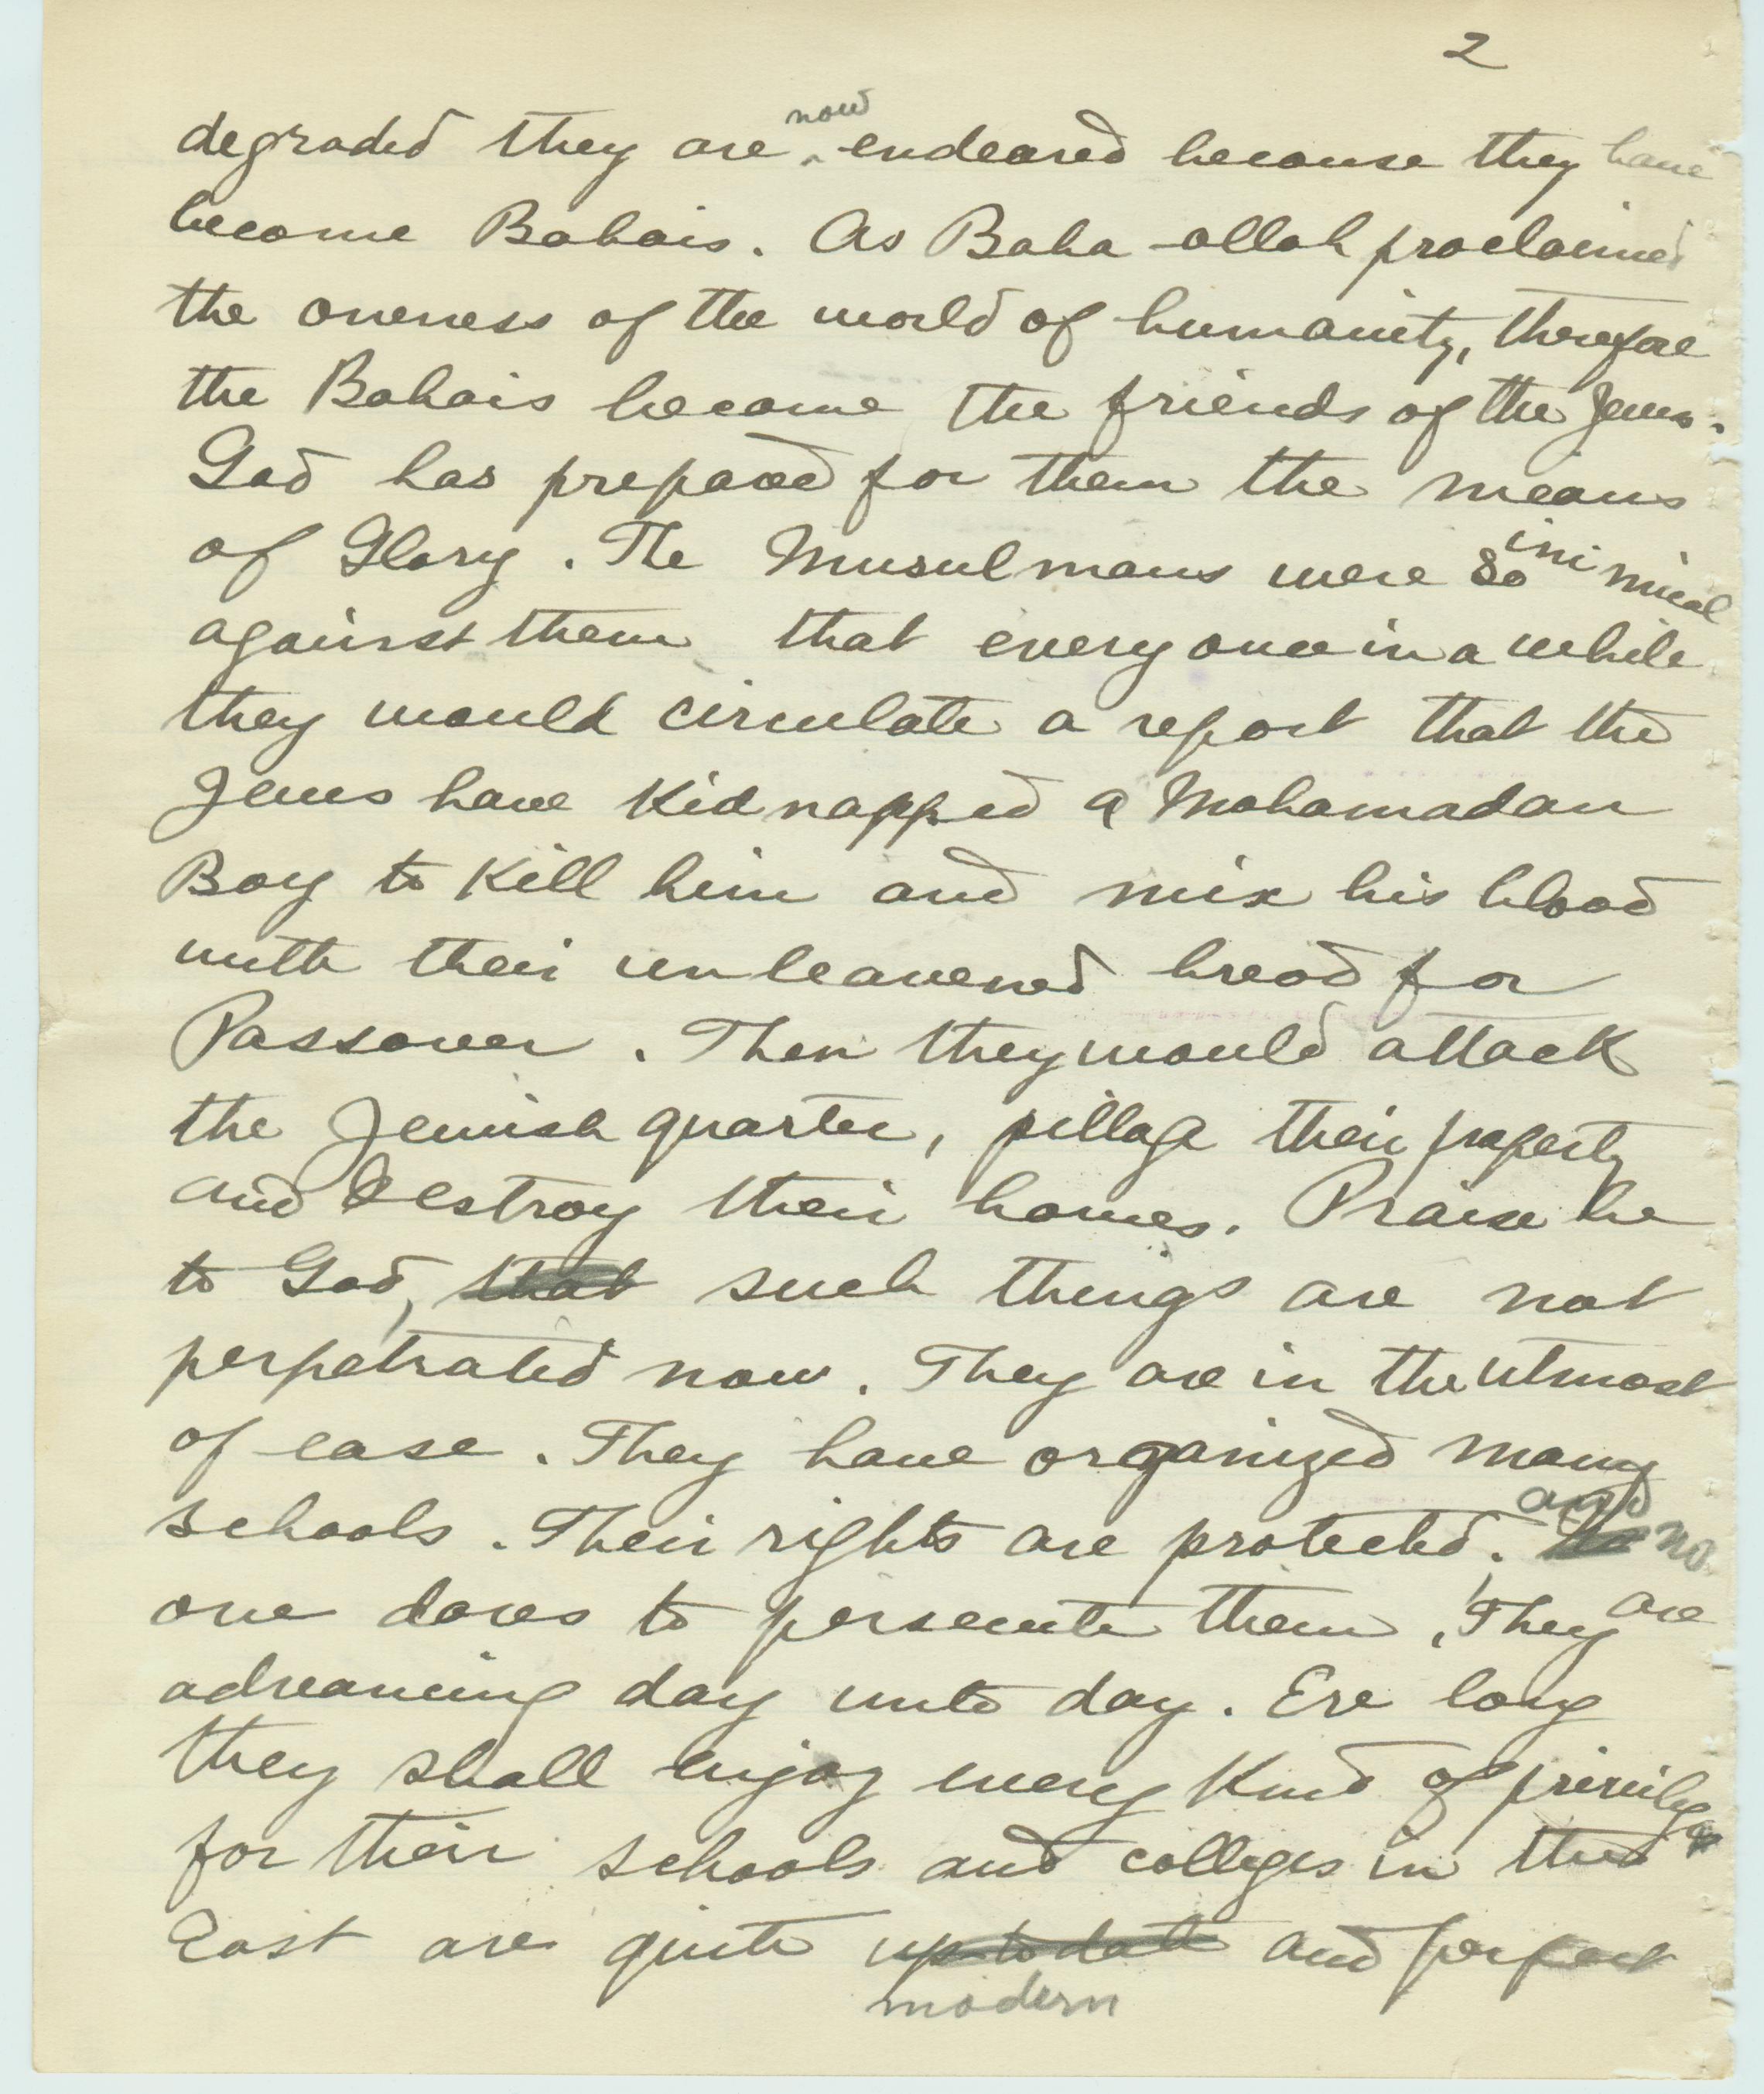 2
degraded they are now endeared because they have
become Bahais. As Baha-ollah proclaimed
the oneness of the world of humanity, therefore
the Bahais become the friends of the Jews.
God has prepared for them the means
of Glory. The Musulmans were so inimical
against them that every once in a while
they would circulate a report that the
Jews have kidnapped a Mohamadan
Boy to kill him and mix his blood
with their unleavened bread for
Passover. Then they would attack
the Jewish quarter, pillage their property
and destroy their homes. Praise be
to God, that such things are not
perpetrated now. They are in the utmost
of ease. They have organized many
schools. Their rights are protected. and no
one dares to persecute them. They are
advancing day unto day. Ere long
they shall enjoy every kind of privilege
for their schools and colleges in the
East are quite up to date and perfect
modern